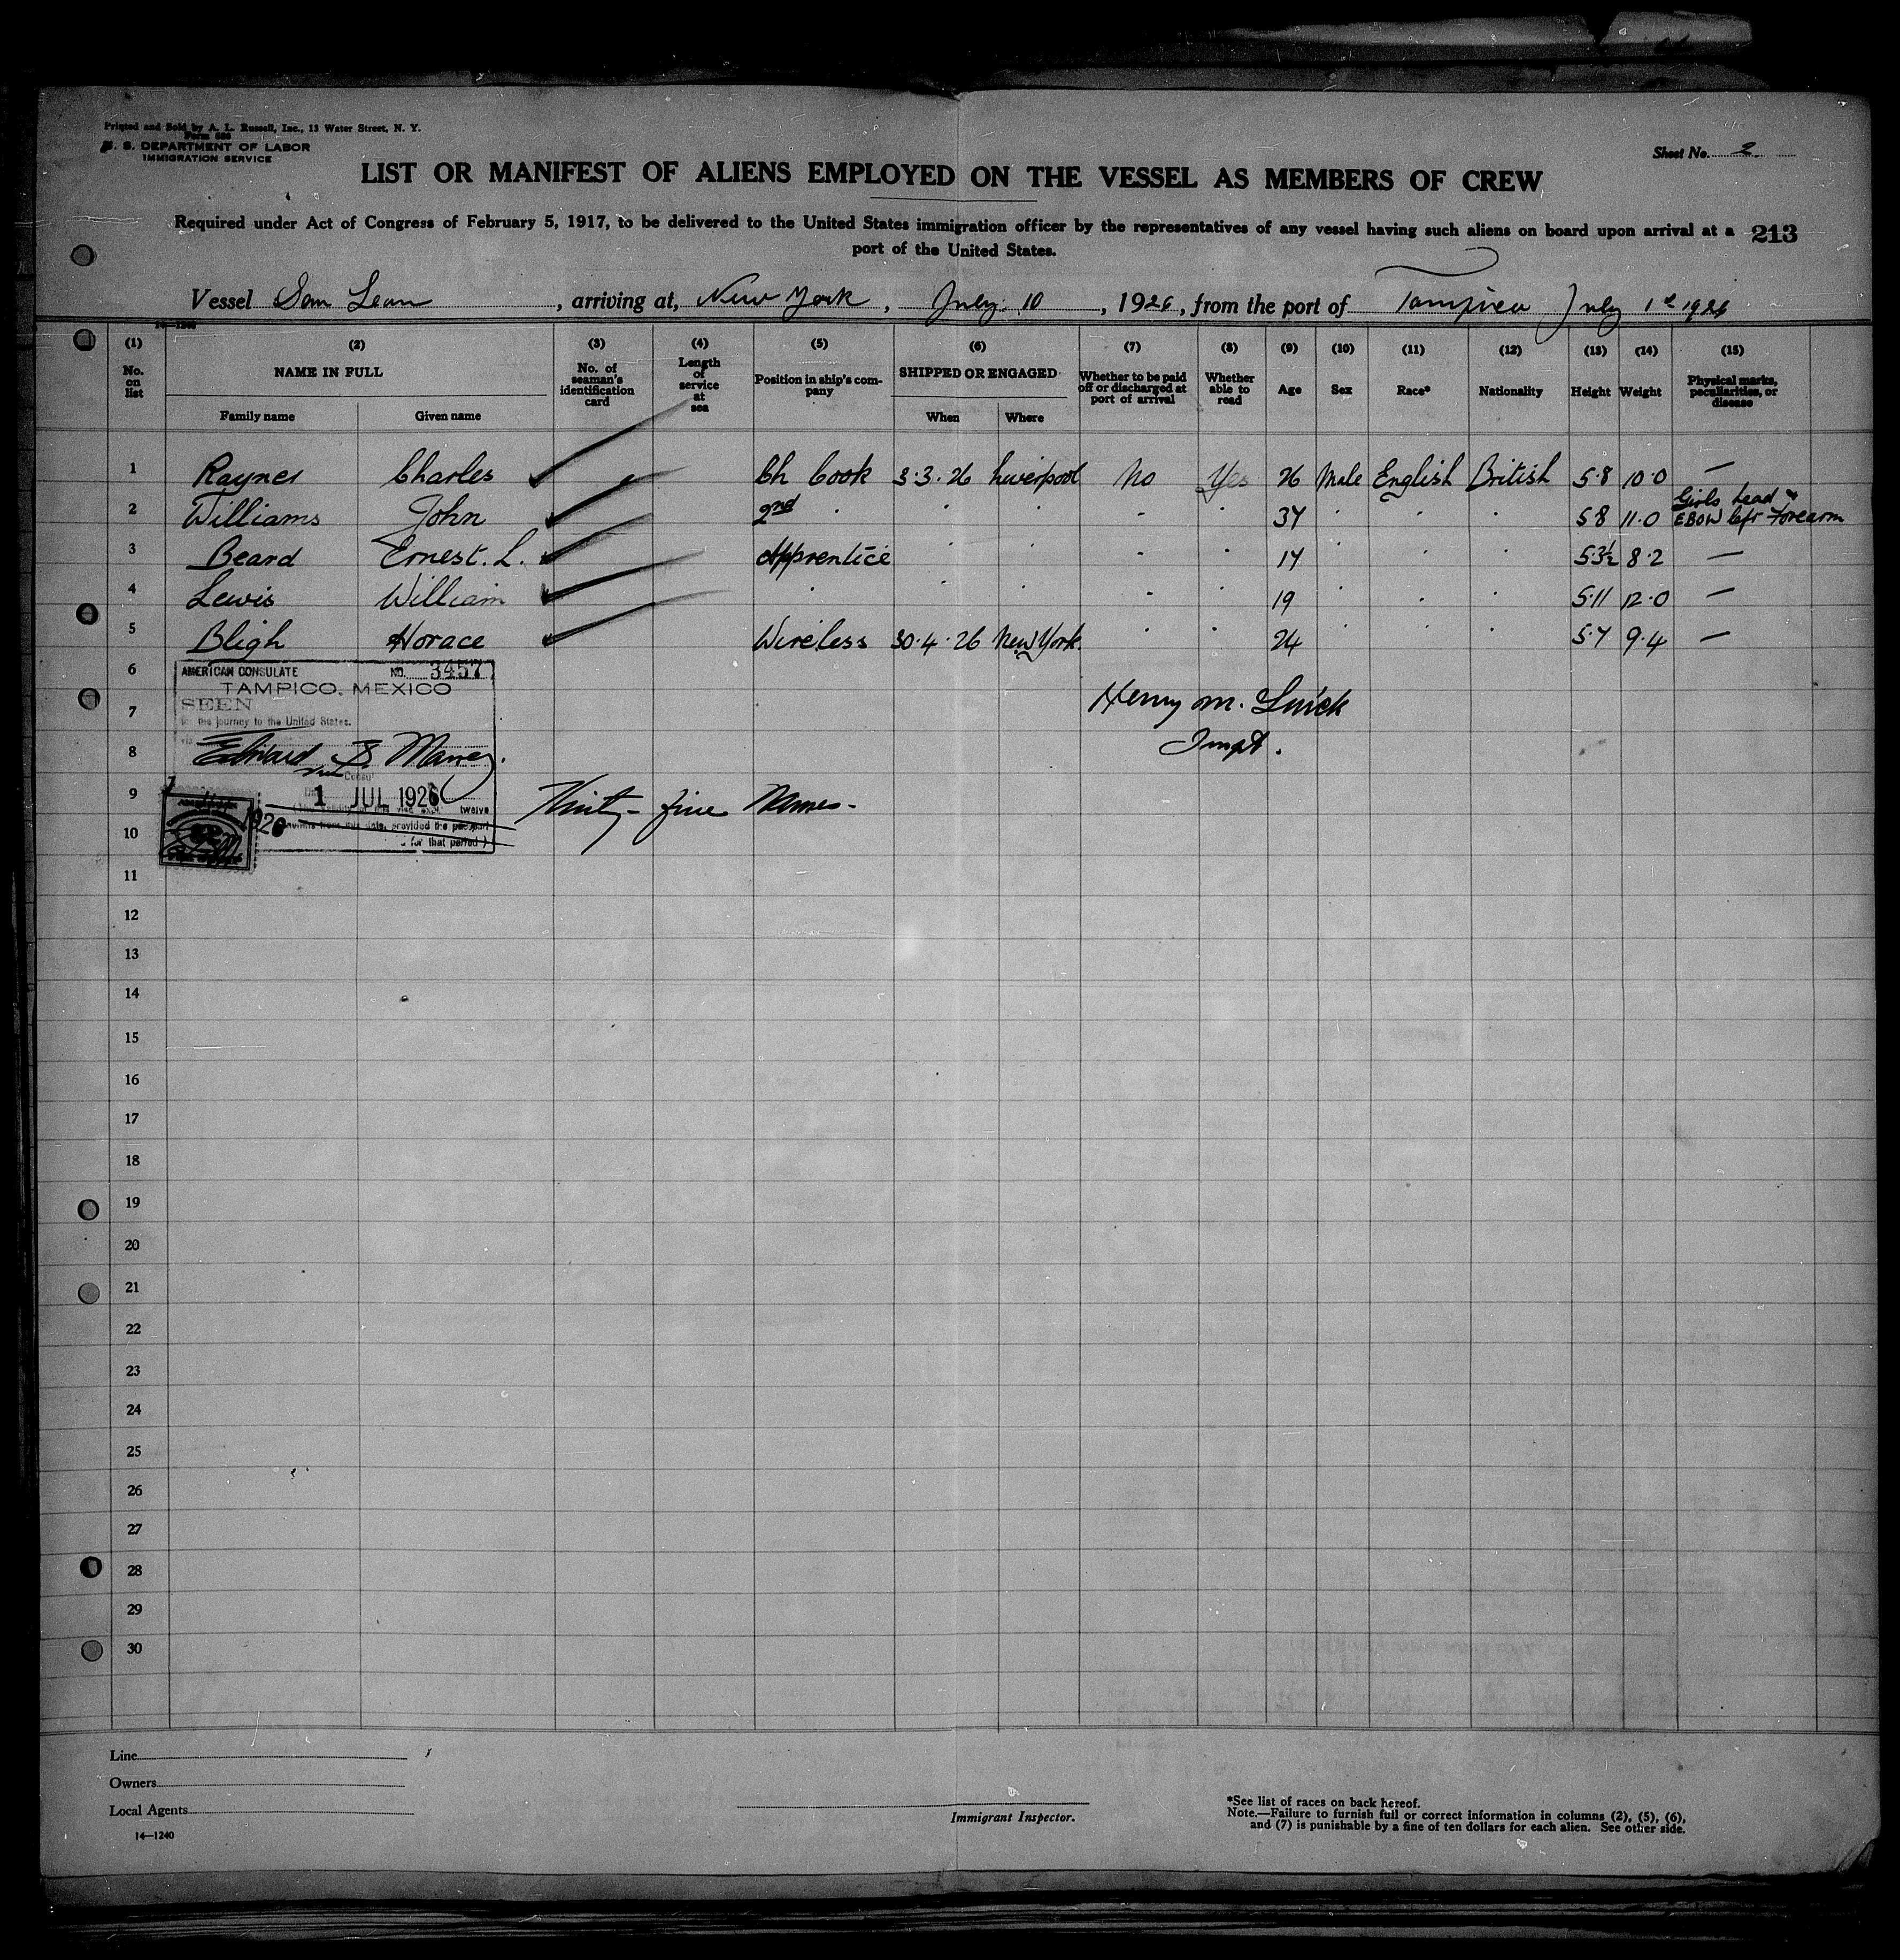 Printed and Sold by A. L. Russell, Inc., 13 Water Street, N. Y.
Form 680
U. S. DEPARTMENT OF LABOR
IMMIGRATION SERVICE
Sheet No. 2
LIST OR MANIFEST OF ALIENS EMPLOYED ON THE VESSEL AS MEMBERS OF CREW
Required under Act of Congress of February 5, 1917, to be delivered to the United States immigration officer by the representatives of any vessel having such aliens on board upon arrival at a
port of the United States.
213
Vessel San Leon, arriving at, New York, July 10, 1926, from the port of Tampico July 1st 1926
14—1240
(1) (2) (3) (4) (5) (6) (7) (8) (9) (10) (11) (12) (13) (14) (15)
No. on list NAME IN FULL No. of seaman's identification card Length of service at sea Position in ship's company SHIPPED OR ENGAGED Whether to be paid off or discharged at port of arrival Whether able to read Age Sex Race* Nationality Height Weight Physical marks, peculiarities, or disease
Family name Given name When Where
1 Rayner Charles Ch Cook 3.3.26 Liverpool No Yes 26 Male English British 5.8 10.0 —
2 Williams John 2nd " " " " " 37 " " " 5.8 11.0 Girls head & EBOW left Forearm
3 Beard Ernest. L. Apprentice " " " " 17 " " " 5.3½ 8.2 —
4 Lewis William " " " " " 19 " " " 5.11 12.0 —
5 Bligh Horace Wireless 30.4.26 New York. " " 24 " " " 5.7 9.4 —
6
7
8
9
10
AMERICAN CONSULATE NO. 3457
TAMPICO, MEXICO
SEEN
for the journey to the United States.
via
Edward S Maney.
Vice Consul
1 JUL 1926
twelve
months from this date, provided the passport
for that period)
1926
Henry M. Quick
Inspt.
Thirty-five Names-
11
12
13
14
15
16
17
18
19
20
21
22
23
24
25
26
27
28
29
30
Line
Owners
Local Agents
14—1240
Immigrant Inspector.
*See list of races on back hereof.
Note.—Failure to furnish full or correct information in columns (2), (5), (6),
and (7) is punishable by a fine of ten dollars for each alien. See other side.